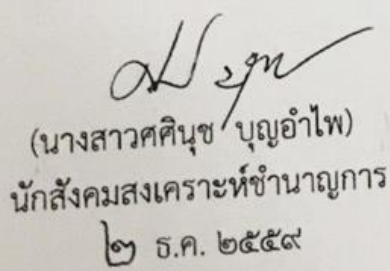 (นางสาวศศินุช บุญอำไพ)
นักสังคมสงเคราะห์ชำนาญการ
๒ ธ.ค. ๒๕๕๙